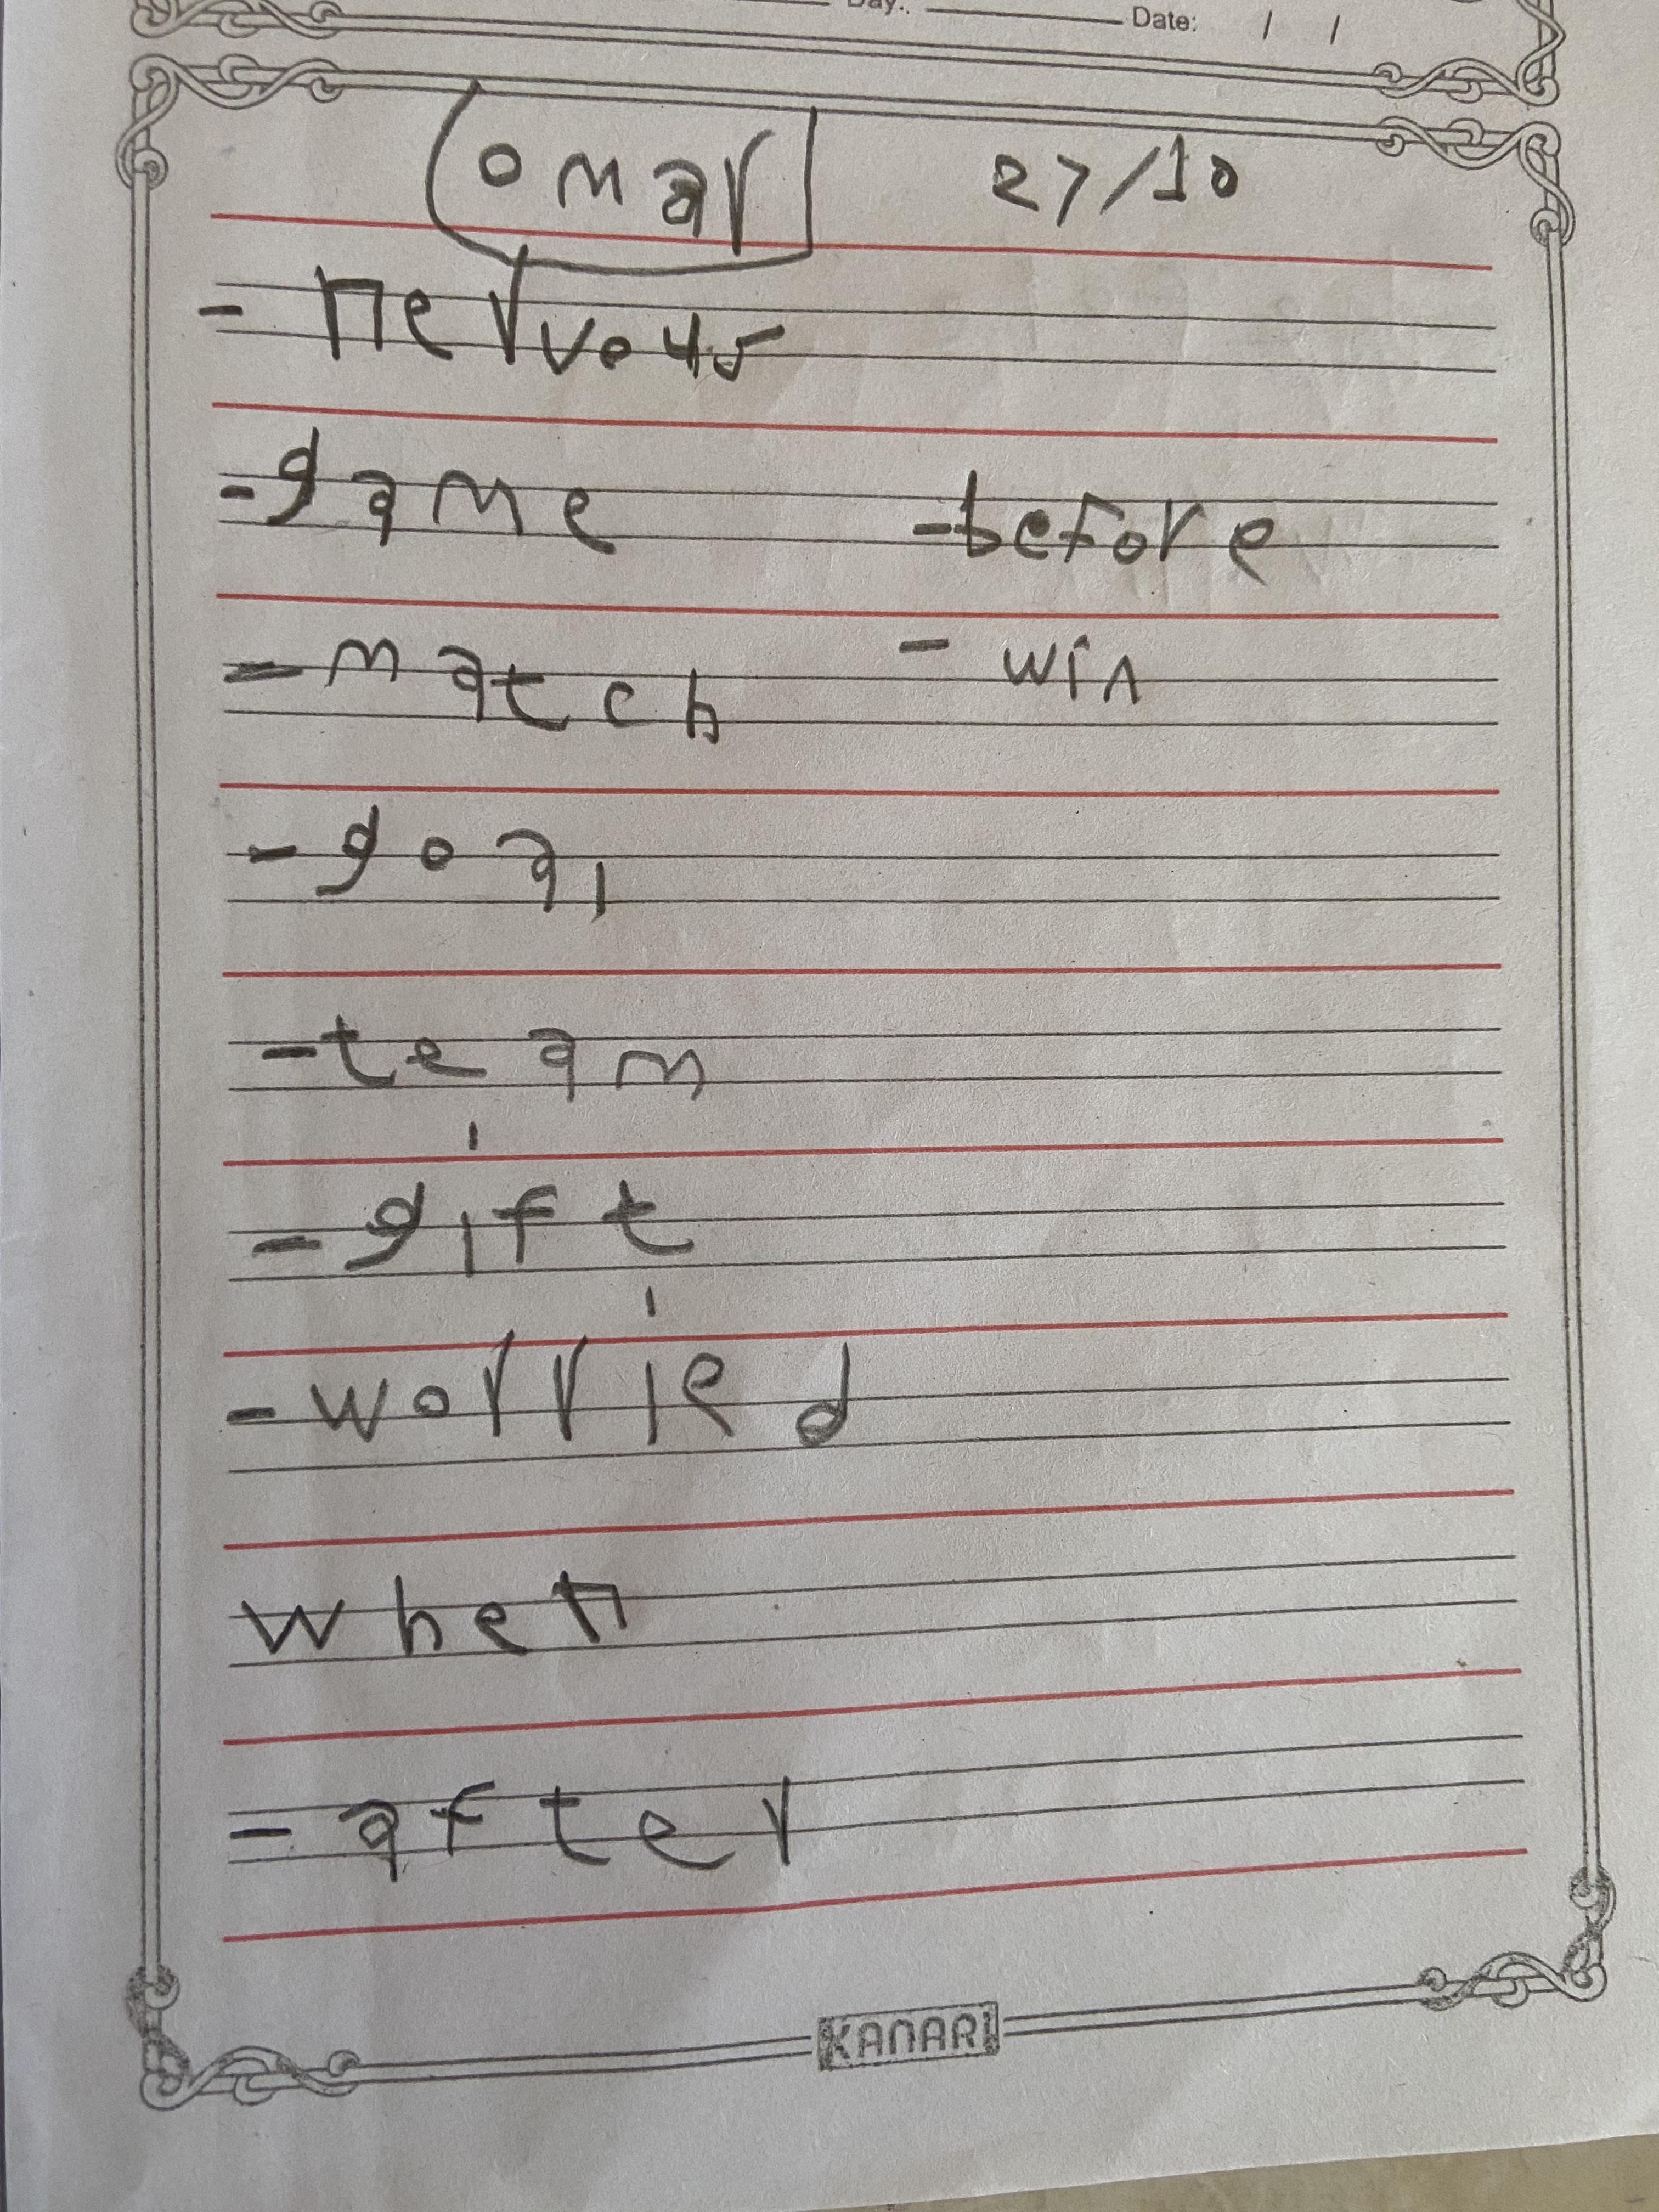 Day: Date: / /
omar 27/10
- nervous
- game - before
- match - win
- goal
- team
- gift
- worried
when
- after
KANARI